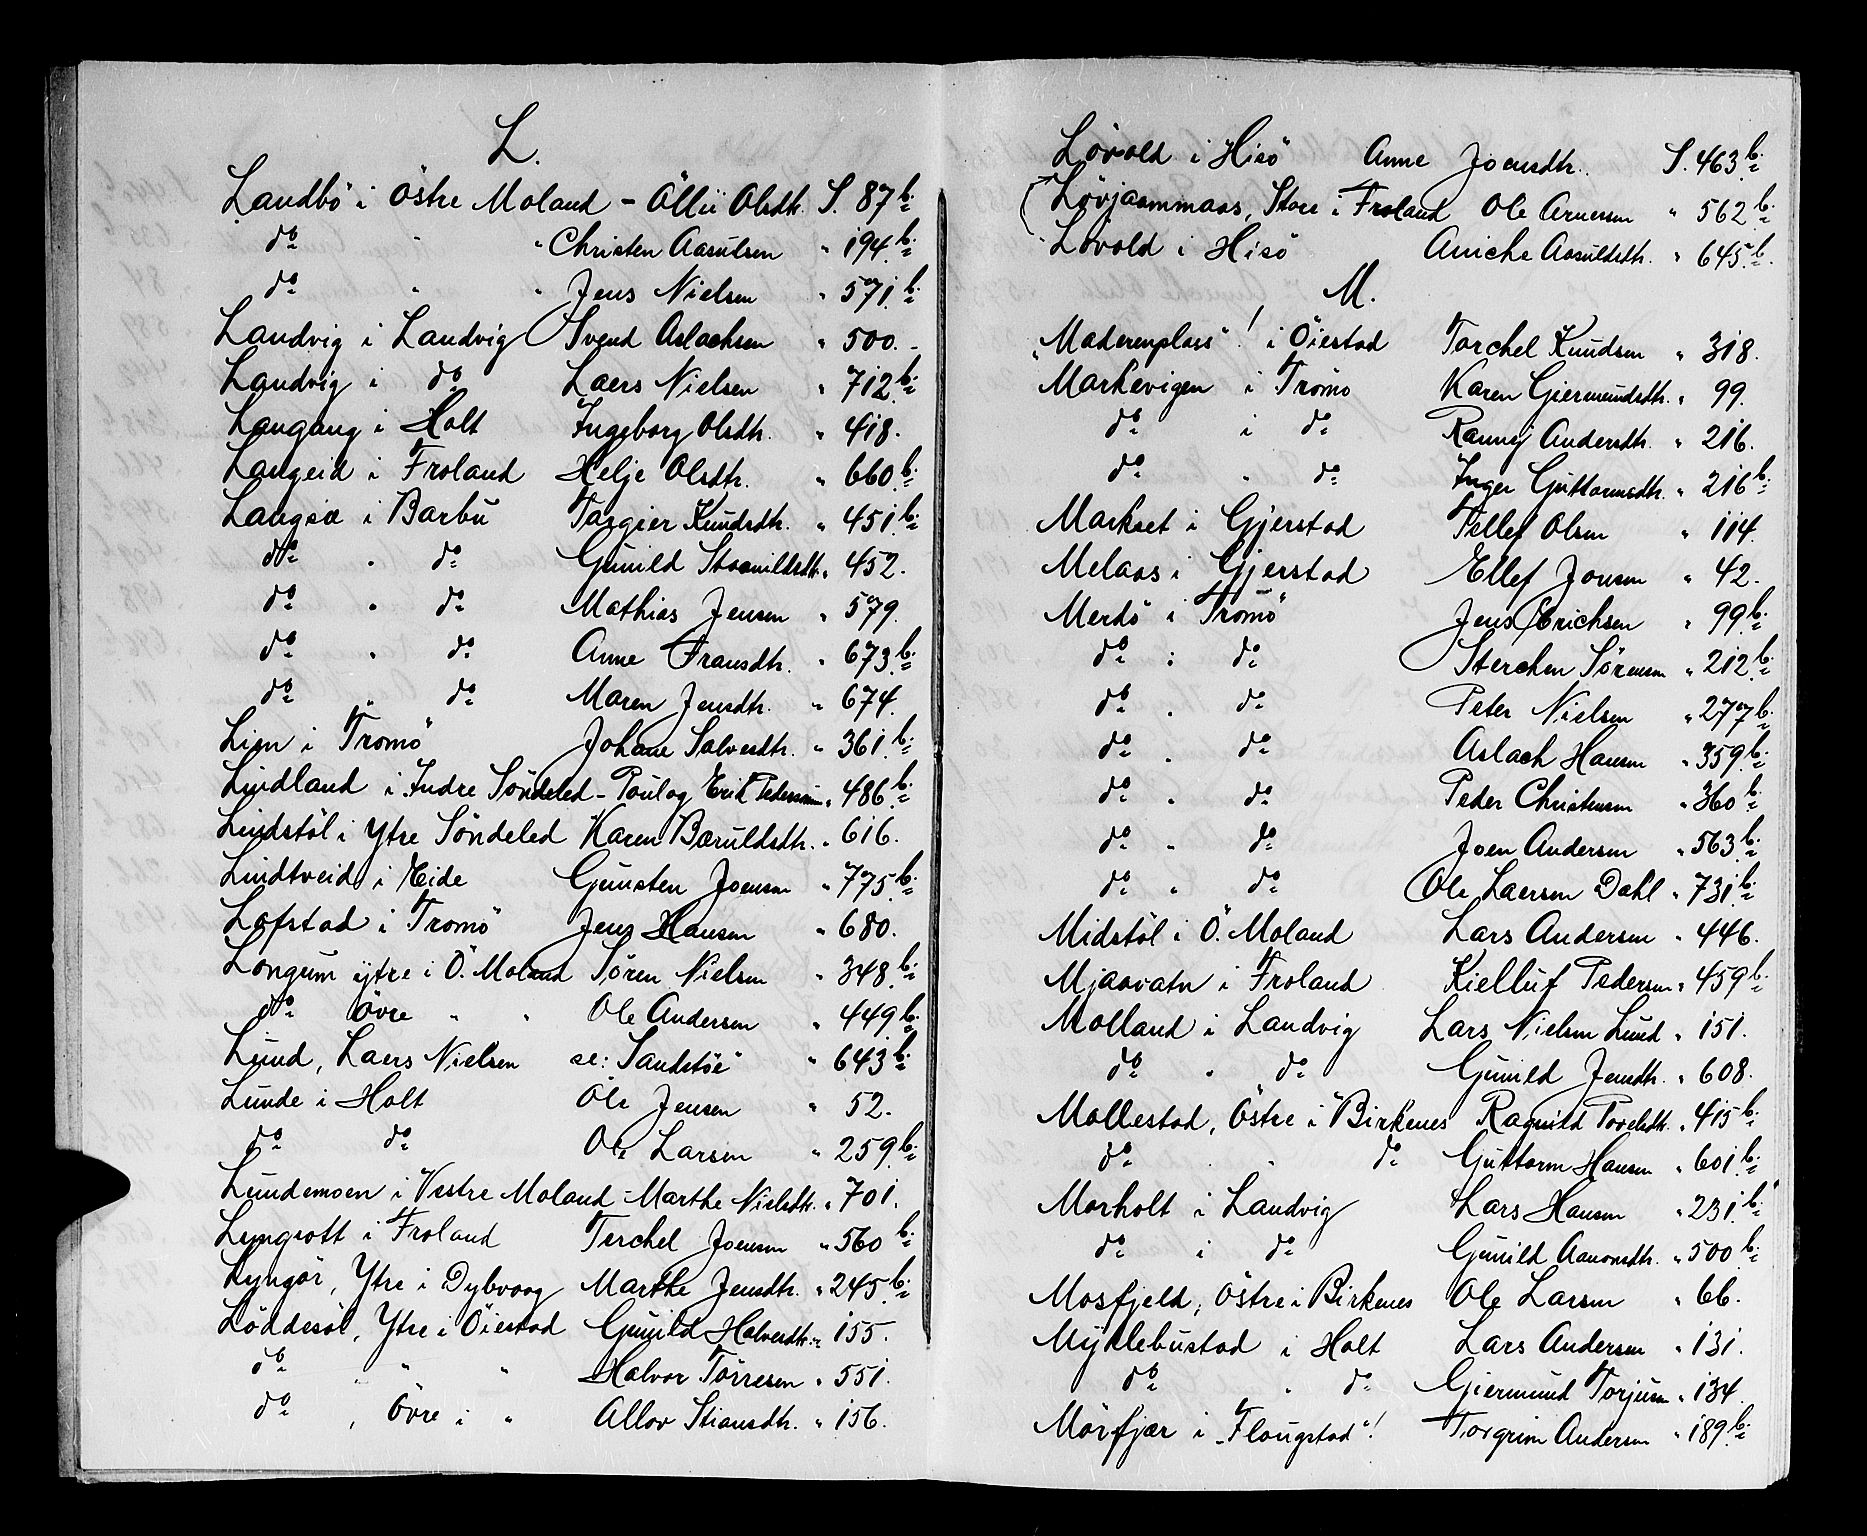 L.
Landbö i Östre Moland - Ollü Olsdtr. S. 87 b.
do " " Christen Aasulsen " 194. b.
do " " Jens Nielsen " 571. b.
Landvig i Landvig Svend Aslachsen " 500. -
Landvig i do Laers Nielsen " 712. b.
Langang i Holt Ingeborg Olsdtr. " 418.
Langeid i Froland Helje Olsdtr. " 660. b.
Langsæ i Barbu Targier Knudsdtr. " 451. b.
do " do Gunild Stoenildsdtr. " 452.
do " do Mathias Jensen " 579.
do " do Anne Fransdtr. " 673. b.
do " do Maren Jensdtr. " 674.
Lien i Tromö Johane Salvesdtr. " 361. b.
Lindland i Indre Söndeled - Poul og Erik Pederssønner " 486. b.
Lindstöl i Ytre Söndeled Karen Bæruldsdtr. " 616.
Lindtveid i Eide Gunsten Joensen " 775. b.
Lofstad i Tromö Jens Hansen " 680.
Longum ytre i Ö. Moland Sören Nielsen " 348. b.
do övre " " Ole Andersen " 449. b.
Lund, Laers Nielsen se: "Sandstöe" " 643. b.
Lunde i Holt Ole Jensen " 52.
do do Ole Larsen " 259. b.
Lundemoen i Vestre Moland - Marthe Nielsdtr. " 701.
Lyngrott i Froland Terchel Joensen " 560 b.
Lyngör, Ytre i Dybvaag Marthe Jensdtr. " 245. b.
Löddesöl, Ytre i Öiestad Gunild Halvordtr. " 155.
do " " Halvor Torresen " 551.
do , Övre i " Allov Stiansdtr. " 156.
Lövold i Hisö Anne Joensdtr. S. 463. b.
Lövjaammaas, Store i Froland Ole Arnesen " 562 b.
Lövold i Hisö Aniche Aasuldsdtr. " 645. b.
M.
"Maderenplass"! i Öiestad Torchel Knudsen " 318.
Markevigen i Tromö Karen Giermundsdtr. " 99.
do i do Ranny Andersdtr. " 216.
do " do Inger Guttormsdtr. " 216 b.
Markset i Gjerstad Tellef Olsen " 114.
Melaas i Gjerstad Ellef Jonsen " 42.
Merdö i Tromö Jens Erichsen " 99. b.
do i do Sterchen Sörensen " 212 b.
do " do Peter Nielsen " 277 b.
do " do Aslach Hansen " 359. b.
do " do Peder Christensen " 360 b.
do " do Joen Andersen " 563. b.
do " do Ole Laersen Dahl " 731. b.
Midstöl i Ö. Moland Lars Andersen " 446.
Mjaavatn i Froland Kielluf Pedersen " 459 b.
Molland i Landvig Lars Nielsen Lund " 151.
do " do Gunild Jensdtr. " 608.
Mollestad, Östre i Birkenes Ragnild Povelsdtr. " 415 b.
do " do Guttorm Hansen " 601. b.
Morholt i Landvig Lars Hansen " 231. b.
do i do Gunild Aanonsdtr. " 500 b.
Mosfjeld, Östre i Birkenes Ole Larsen " 66.
Myklebustad i Holt Lars Andersen " 131.
do " do Giermund Torjusen " 134.
Mörfjær i "Flougstad"! Torgrim Andersen " 189. b.